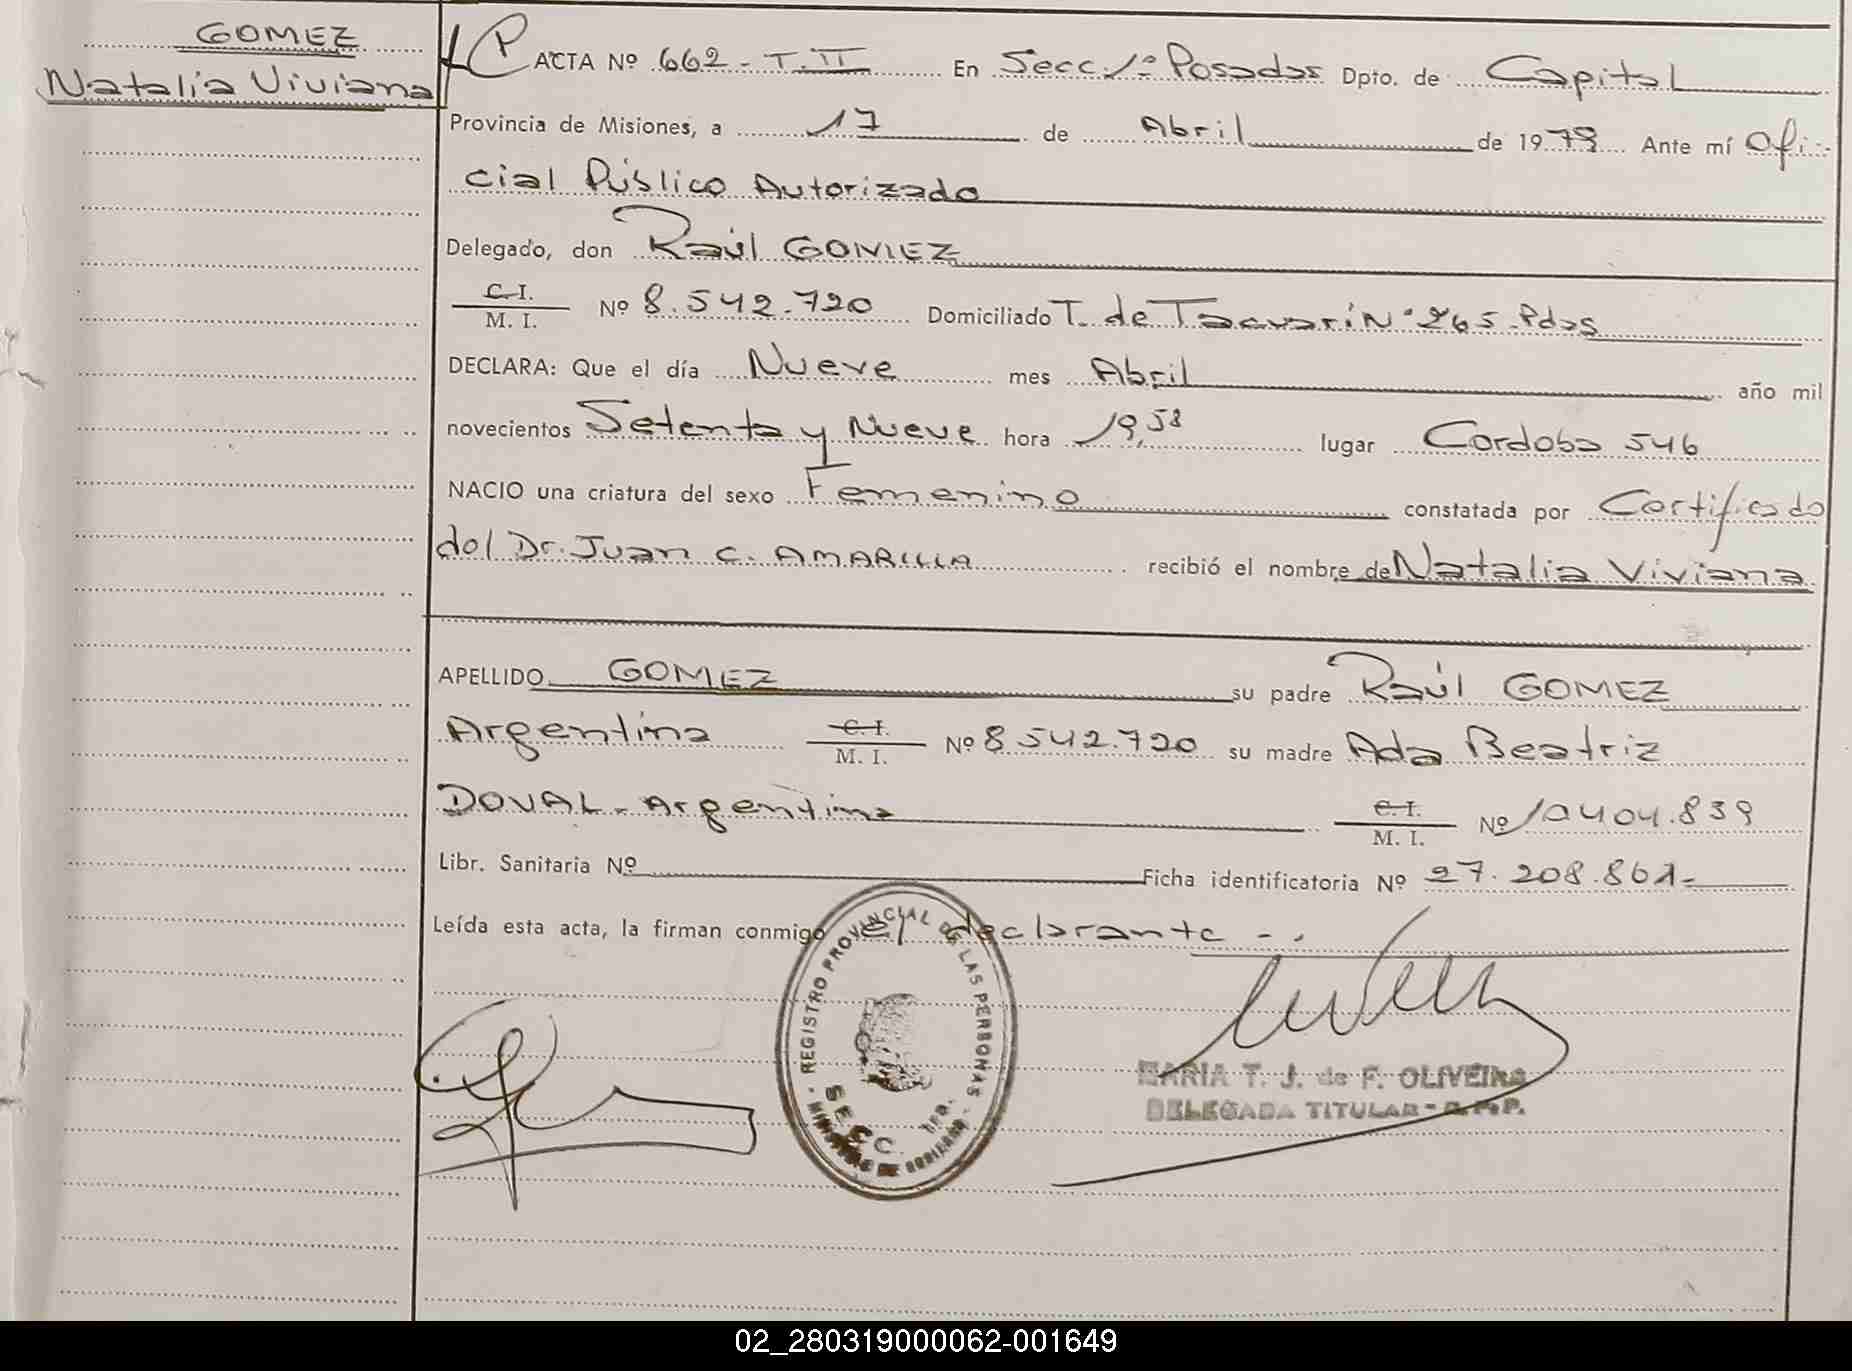 GOMEZ
Natalia Viviana
ACTA Nº 662 - T. II En Secc. 1º Posadas Dpto. de Capital
Provincia de Misiones, a 17 de Abril de 1979 Ante mí Ofi-
cial Público Autorizado
Delegado, don Raúl GOMEZ
C.I.
M. I. Nº 8.542.720 Domiciliado T. de Tacuarí Nº 265. Pdas
DECLARA: Que el día Nueve mes Abril año mil
novecientos Setenta y Nueve hora 19,58 lugar Cordoba 546
NACIO una criatura del sexo Femenino constatada por Certificado
del Dr. Juan C. AMARILLA recibió el nombre de Natalia Viviana
APELLIDO GOMEZ su padre Raúl GOMEZ
Argentina C.I. M. I. Nº 8 542.720 su madre Ada Beatriz
DOVAL - Argentina C.I. M. I. Nº 10404.839
Libr. Sanitaria Nº Ficha identificatoria Nº 27.208.861-
Leída esta acta, la firman conmigo el declarante - .
REGISTRO PROVINCIAL DE LAS PERSONAS
SECC.
MINISTERIO DE GOBIERNO
MARIA T. J. de F. OLIVEIRA
DELEGADA TITULAR - R.P.P.
02_280319000062-001649